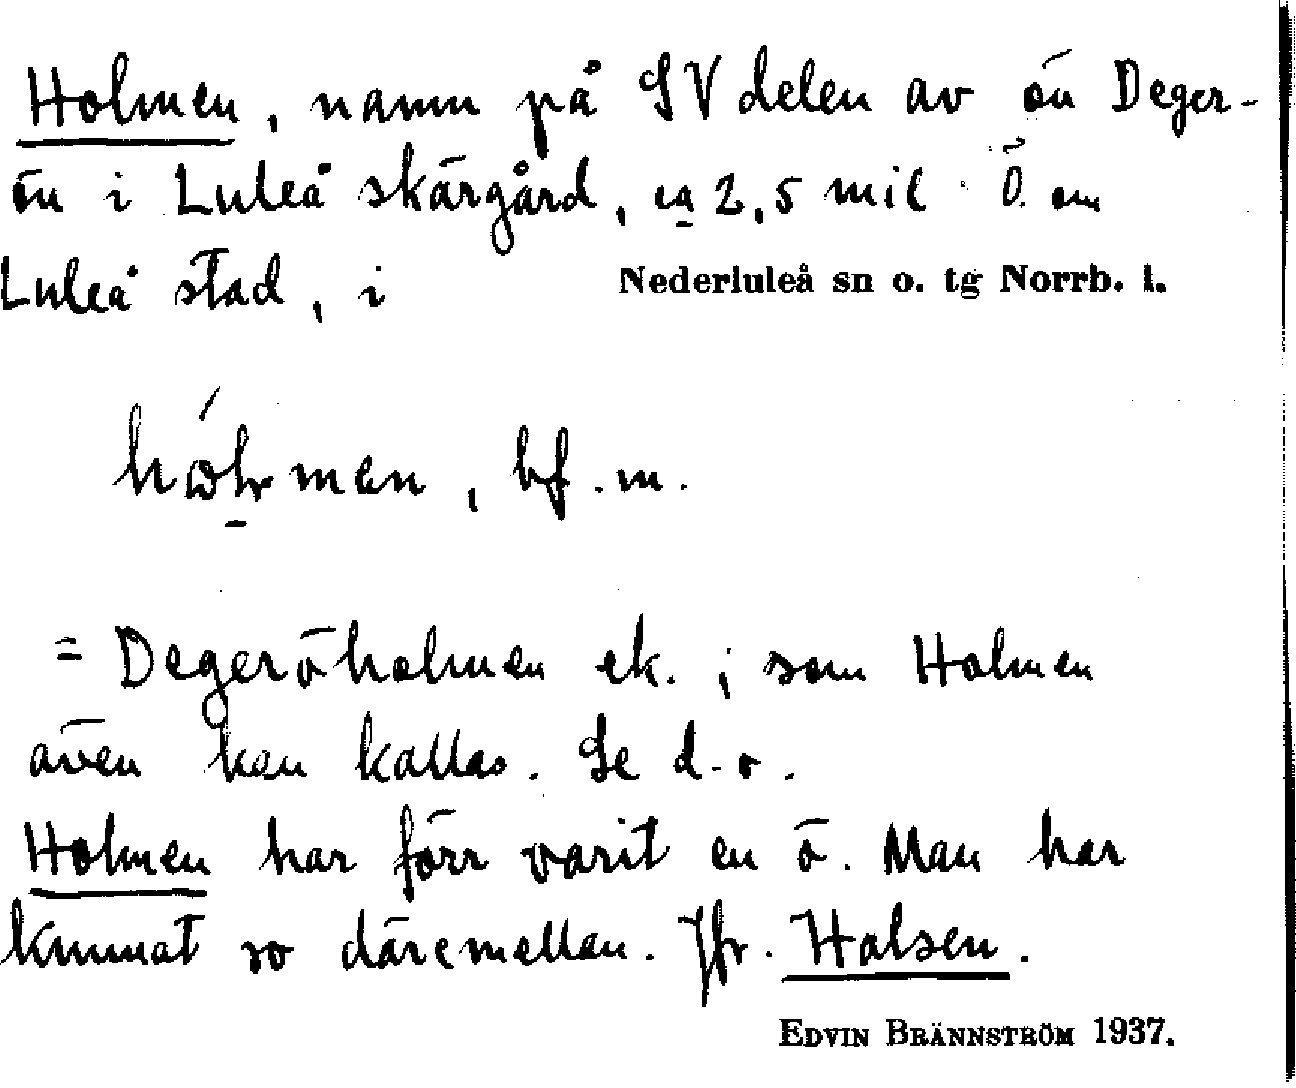 Holmen, namn på SV delen av ön Deger-
ön i Luleå skärgård, ca 2,5 mil Ö. om
Luleå stad, i Nederluleå sn o. tg Norrb. l.
bf. m.
= Degeröholmen ek. ; som Holmen
även kan kallas. Se d. o.
Holmen har förr varit en ö. Man har
kunnat ro däremellan. Jfr. Halsen.
EDVIN BRÄNNSTRÖM 1937.